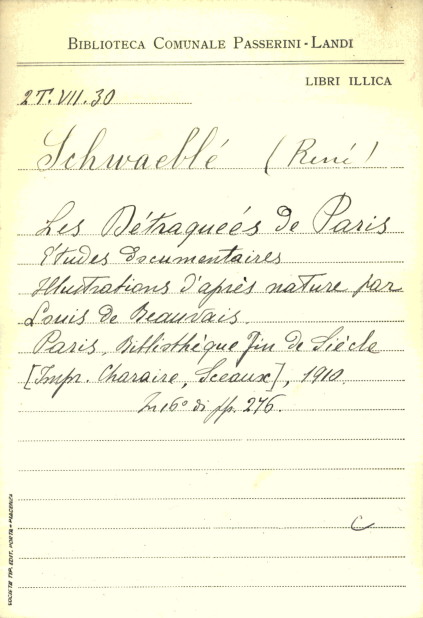 BIBLIOTECA COMUNALE PASSERINI-LANDI
LIBRI ILLICA
2T.VII.30
Schwaeblé (René)
Les Détraqueés de Paris
Etudes documentaires
Illustrations d'après nature par
Louis de Beauvais.
Paris, Bibliothèque Fin de Siècle
[Impr. Charaire, Sceaux], 1910.
In 16° di pp. 276.
C
SOCIETÀ TIP. EDIT. PORTA - PIACENZA